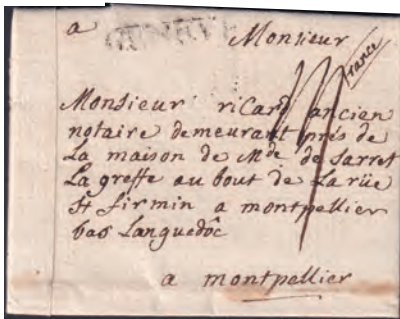 a GENEVE Monsieur
france
Monsieur ricard ancien
notaire demeurant prés de
La maison de Mde de Sarret
La greffe au bout de La rüe
St firmin a montpellier
bas Languedôc
a montpellier